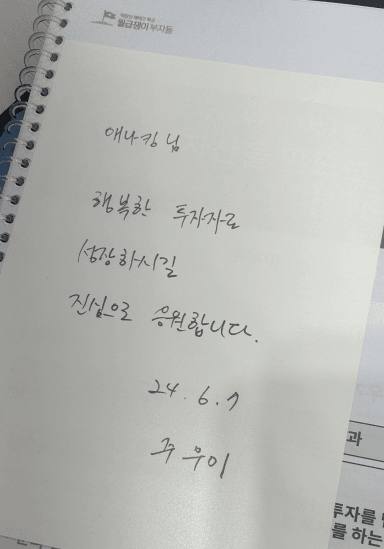 월급쟁이 부자들
애나킹님
행복한 투자자로
성장하시길
진심으로 응원합니다.
24. 6. 7
주우이
과
투자를
를 하는